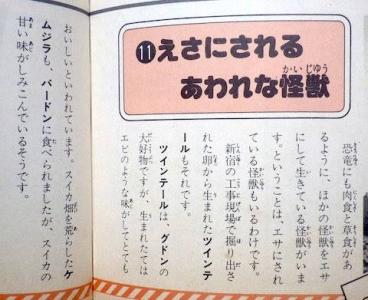 ⑪えさにされる
あわれな怪獣
かいじゅう
恐竜にも肉食と草食があ
るように、ほかの怪獣をエサ
にして生きている怪獣がいま
す。ということは、エサにされ
ている怪獣もいるわけです。
新宿の工事現場で掘り出さ
れた卵から生まれたツインテ
ールもそれです。
ツインテールは、グドンの
大好物ですが、生まれたては
エビのような味がしてとても
おいしいといわれています。スイカ畑を荒らしたケ
ムジラも、バードンに食べられましたが、スイカの
甘い味がしみこんでいるそうです。